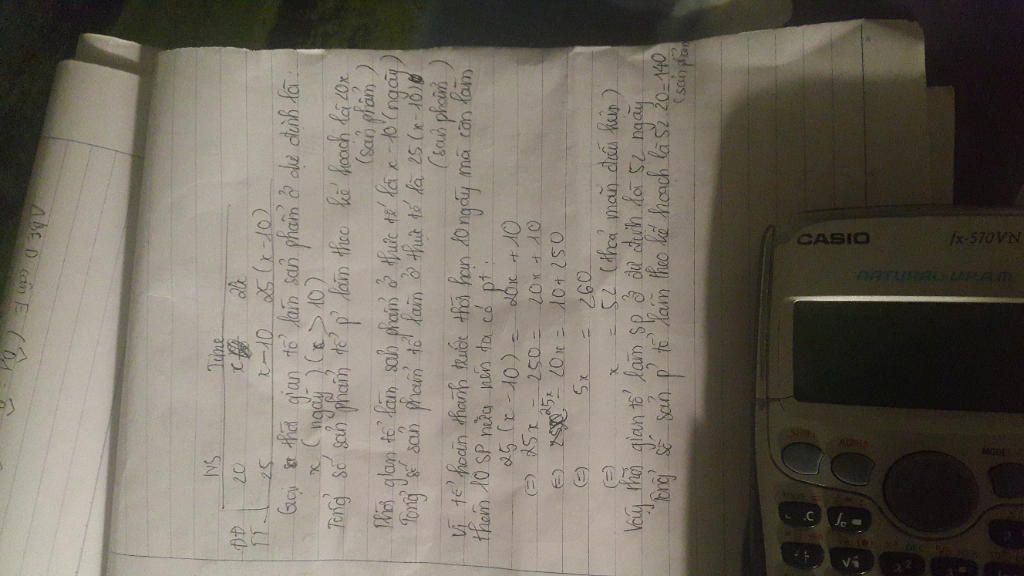 NS Time
DĐ 20 x 20x
TT 25 x-10 25(x-10)
Gọi thời gian tổ làm sản phẩm ở dự định là:
x (ngày) (x > 10)
Tổng số sản phẩm tổ p' làm theo kế hoạch là 20x
(sản phẩm)
Thời gian tổ làm sản phẩm ở thực tế là x-10 (ngày)
Tổng số sản phẩm tổ làm ở thực tế là 25(x-10)
(sản phẩm)
Vì tổ hoàn thành trước thời hạn 10 ngày mà còn làm
thêm 10 SP nữa nên ta có pt:
25(x-10) = 20x + 10
(=) 25x - 250 = 20x + 10
(=) 25x - 20x = 10 + 250
(=) 5x = 260
(=) x = 52 (thoả mãn điều kiện)
Vậy thời gian tổ làm SP ở dự định là 52 ngày
Tổng số sản p' tổ làm theo kế hoạch là 52.20=140
(sản phẩm)
CASIO fx-570VN
NATURAL-V.P.A.M.
SHIFT ALPHA MODE